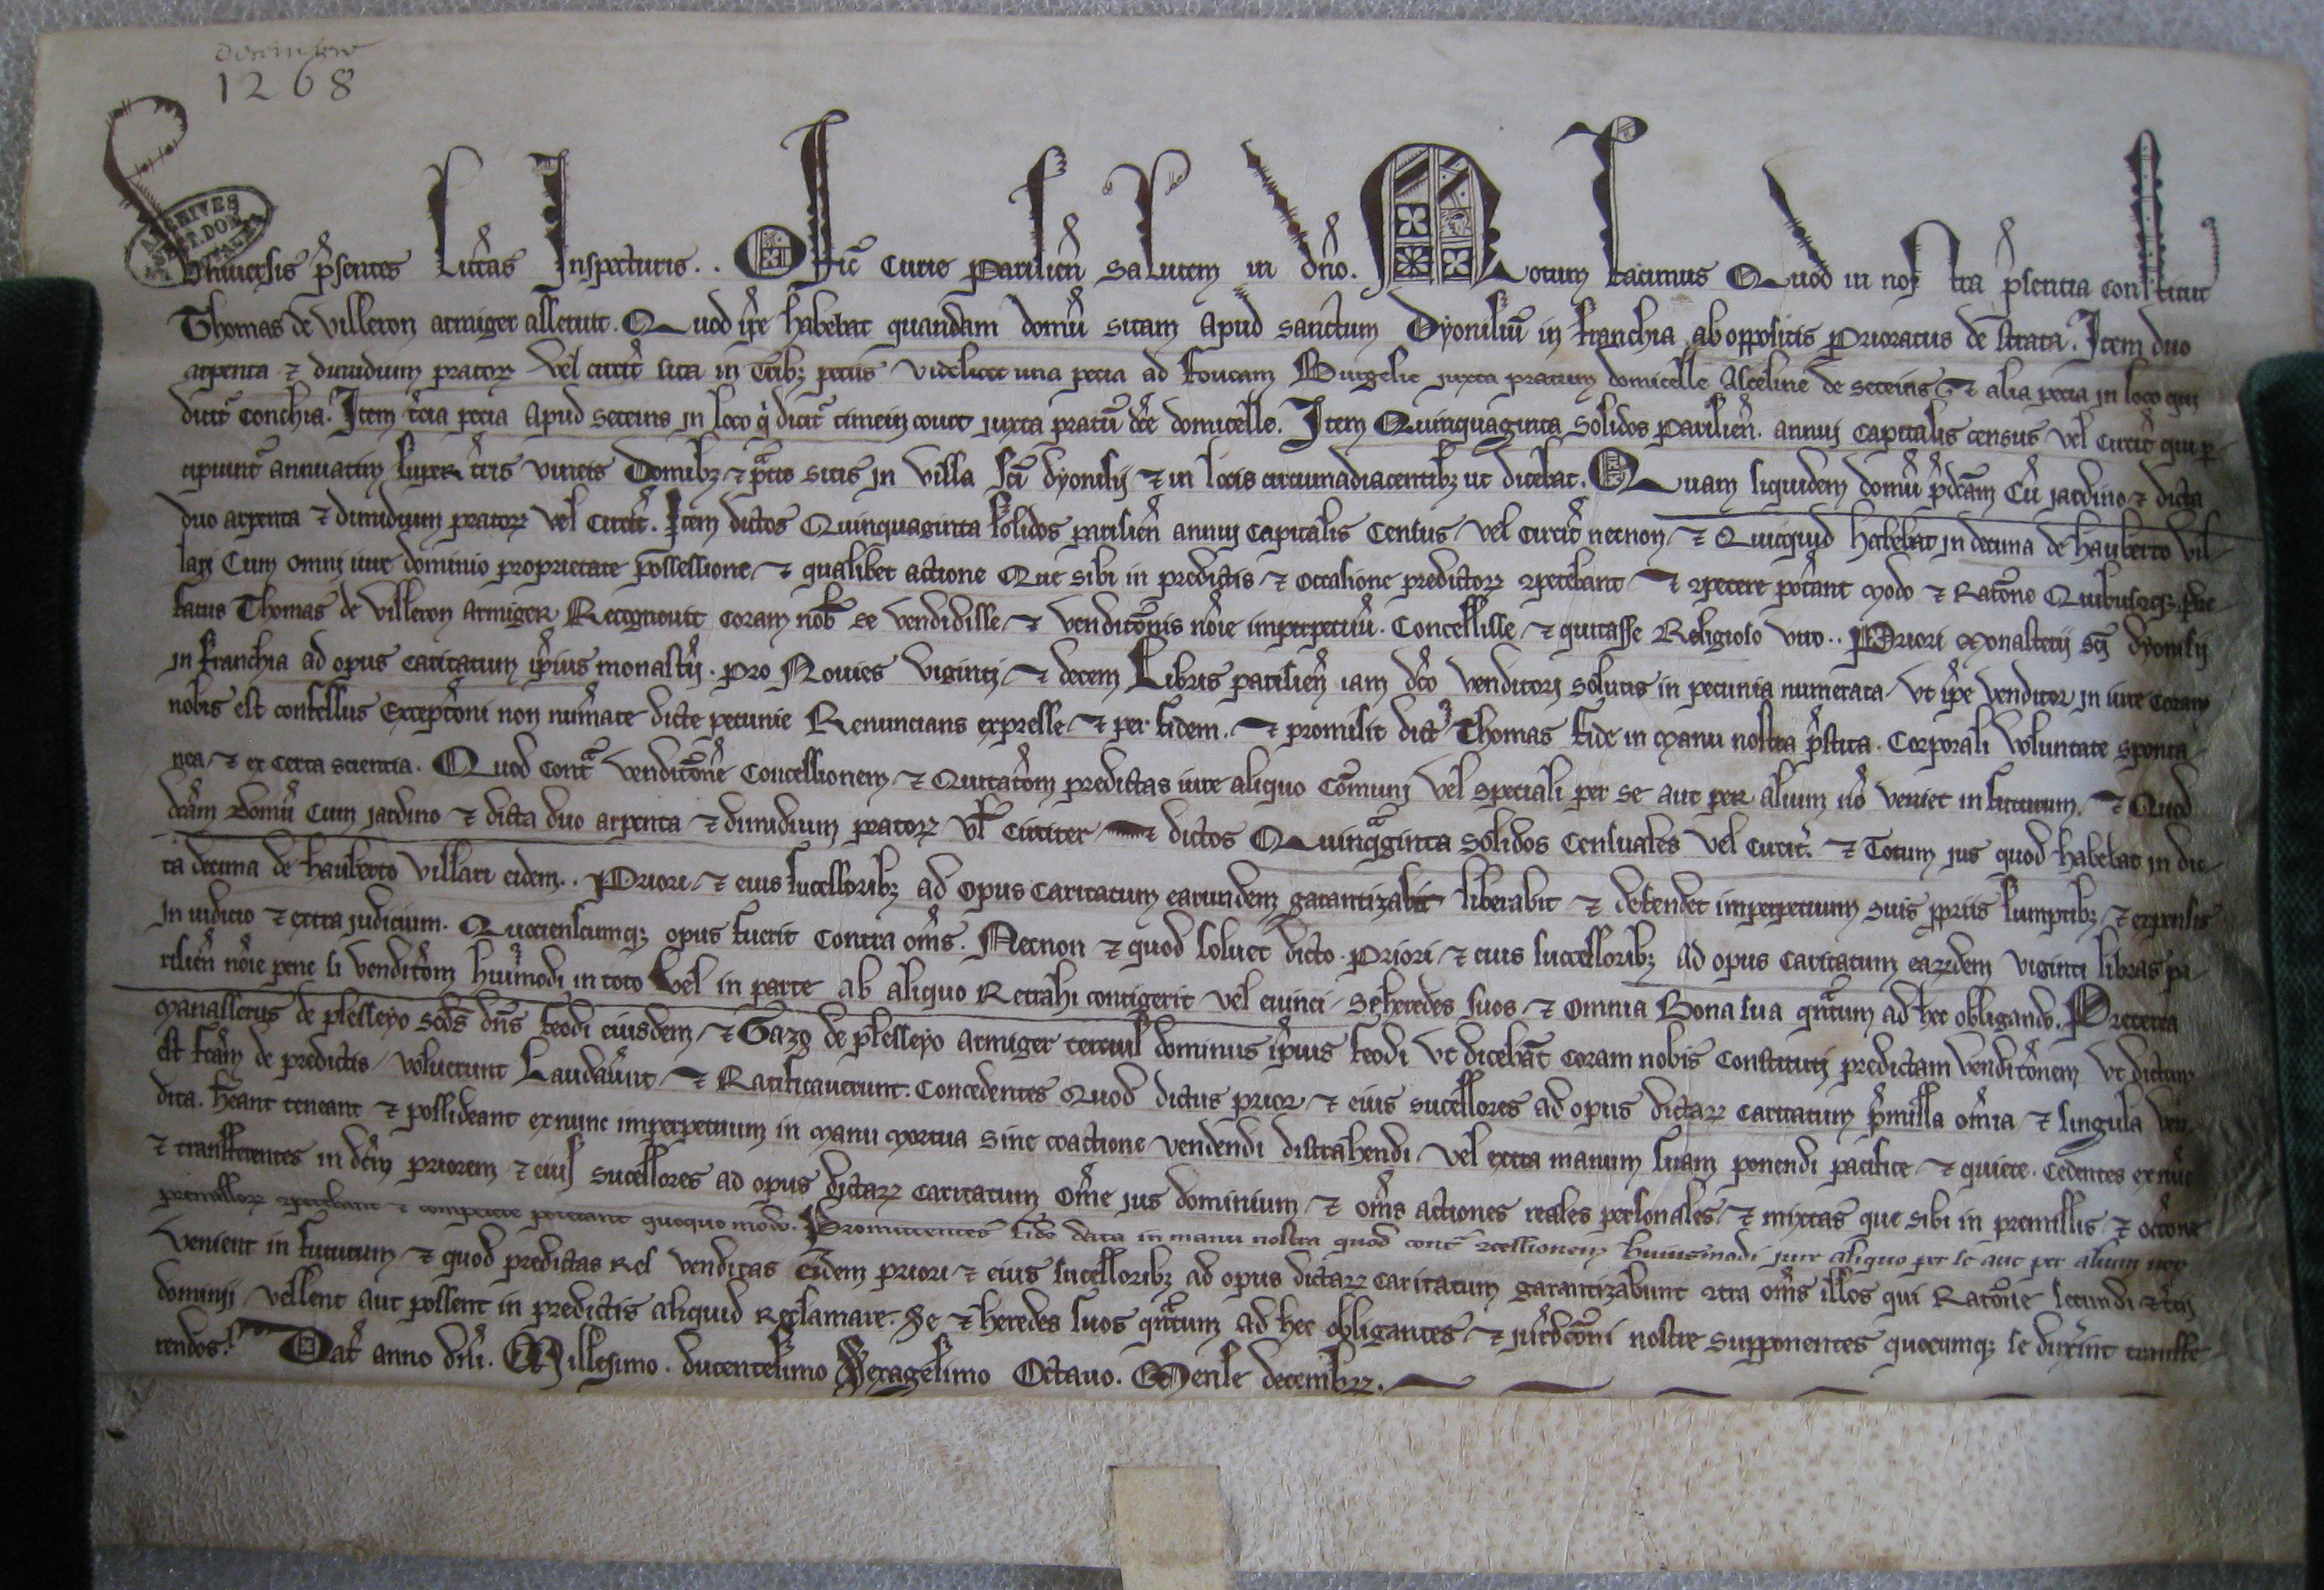 decembre
1268
ARCHIVES
Vniuersis p̃sentes Litt̃as Inspecturis.. Offic̃ Curie Parisien̄ Salutem in dño. Notum facimus Quod in nostra p̃sentia constitut
Thomas de Villeron armiger asseruit. Quod ip̃e habebat quandam domũ sitam apud sanctum Dyonisiũ in francia ab oppositis Prioratus de strata. Item duo
arpenta ⁊ dimidium pratoꝝ vel circit̃ sita in trib; peciis videlicet una pecia ad foucam Burgesie juxta pratum domicelle Asceline de seceins ⁊ alia pecia in loco qui
dicit̃ conchia. Item t̃cia pecia apud seceins in loco q̃ dicit̃ court juxta pratũ dc̃e domicelle. Item Quinquaginta Solidos Parisien̄. annuj capitalis census vel circit̃ qui p̲
cipiunt̃ annuatim super t̃ris vineis Domib; ⁊ p̃tis sitis in villa sc̃i dyonisij ⁊ in locis circumadiacentib; ut dicebat. Quam siquidem domũ p̃dc̃am cũ jardino ⁊ dicta
duo arpenta ⁊ dimidium pratoꝝ vel circit̃. Item dictos Quinquaginta solidos parisien̄ annuj capitalis Census vel circit̃ necnon ⁊ Quicquid habebat in decima de hauberto vil
lari Cum omnj iure dominio proprietate possessione ⁊ qualibet actione Que sibi in predictis ⁊ occasione predictoꝝ ꝯpetebant ⁊ ꝯpetere pot̃ant modo ⁊ Ratõne Quibuscq; p̃fe
fatus Thomas de Villeron Armiger Recognouit coram nob̃ se vendidisse ⁊ venditõis nõie imperpetuũ. Concessisse ⁊ quitasse Religioso viro.. Priori Monasterij sc̃i Dyonisij
in francia ad opus caritatum ip̃ius monast̃ij. pro Nouies viginti ⁊ decem Libris parisien̄ iam dc̃o venditorj solutis in pecunia numerata. Vt ip̃e venditor in iure coram
nobis est confessus Excepc̃oni non num̃ate dicte pecunie Renuncians expresse ⁊ per fidem. ⁊ promisit dict⁹ Thomas fide in manu nostra p̃stita. Corporali voluntate sponta
nea ⁊ ex certa scientia. Quod cont̃ venditõne concessionem ⁊ Quitac̃om predictas iure aliquo cõmunj vel speciali per se aut per alium nõ veniet in futurum. ⁊ Quod
dc̃am domũ cum jardino ⁊ dicta duo arpenta ⁊ dimidium pratoꝝ vl̃ circiter ⁊ dictos Quinq̃ginta Solidos Censuales vel circit̃. ⁊ Totum jus quod habebat in dic
ta decima de hauberto villari eidem.. Priori ⁊ eius successorib; ad opus caritatum earundem garantizabit liberabit ⁊ defendet imperpetuum suis p̲priis sumptib; ⁊ expensis
In iudicio ⁊ extra judicium. Quociensc̃umq; opus fuerit contra om̃s. Necnon ⁊ quod soluet dicto. Priori ⁊ eius successorib; ad opus caritatum earꝝdem viginti libras pa
risien̄ nõie pene si vendic̃om hui⁹modi in toto vel in parte ab aliquo Retrahi contigerit vel euinci. Se heredes suos ⁊ omnia Bona sua q̃ntum ad hec obligando. Preterea
Manasserus de plesseyo sc̃ds dn̄s feodi eiusdem ⁊ Gazo de plesseyo armiger terciuſ dominus ip̃ius feodi vt dicebãt coram nobis constitutj predictam venditõnem vt dictum
est fc̃am de predictis voluerunt Laudaũnt ⁊ Ratificauerunt. Concedentes Quod dictus prior ⁊ eius successores ad opus dictaꝝ caritatum p̃missa om̃ia ⁊ singula ven
dita. hẽant teneant ⁊ possideant exnunc imperpetuum in manu mortua sine coactione vendendi distrahendi vel extra manum suam ponendi pacifice ⁊ quiete. Cedentes exnũc
⁊ transferentes in dc̃m priorem ⁊ eius successores ad opus dictaꝝ caritatum om̃e jus dominium ⁊ om̃s actiones reales personales ⁊ mixtas que sibi in premissis ⁊ occõne
premissoꝝ ꝯpetebant ⁊ competere poterant quoquo modo. Promittentes fide data in manu nostra quod cont̃ ꝯcessionem huiusmodi jure aliquo per se aut per alium non
venient in futurum ⁊ quod predictas res venditas eidem priori ⁊ eius successorib; ad opus dictaꝝ caritatum garantizabunt ꝯtra om̃s illos qui Ratõne secundi ⁊ t̃cij
dominij vellent aut possent in predictis aliquid Reclamare. Se ⁊ heredes suos q̃ntum ad hec obligantes ⁊ jur̃dic̃oni nostre supponentes quocumq; se dux̃int transfe
rendos. Dat̃ anno dñi. Millesimo. ducentesimo Sexagesimo Octauo. Mense decembꝝ.